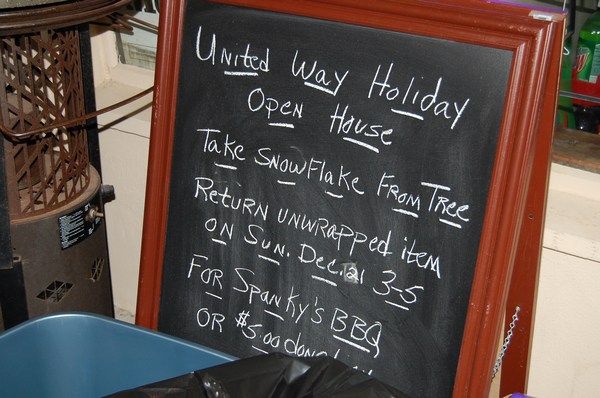 United Way Holiday
Open House
Take Snowflake From Tree
Return unwrapped item
on Sun. Dec. 21 3-5
For Spanky's BBQ
or $5.00